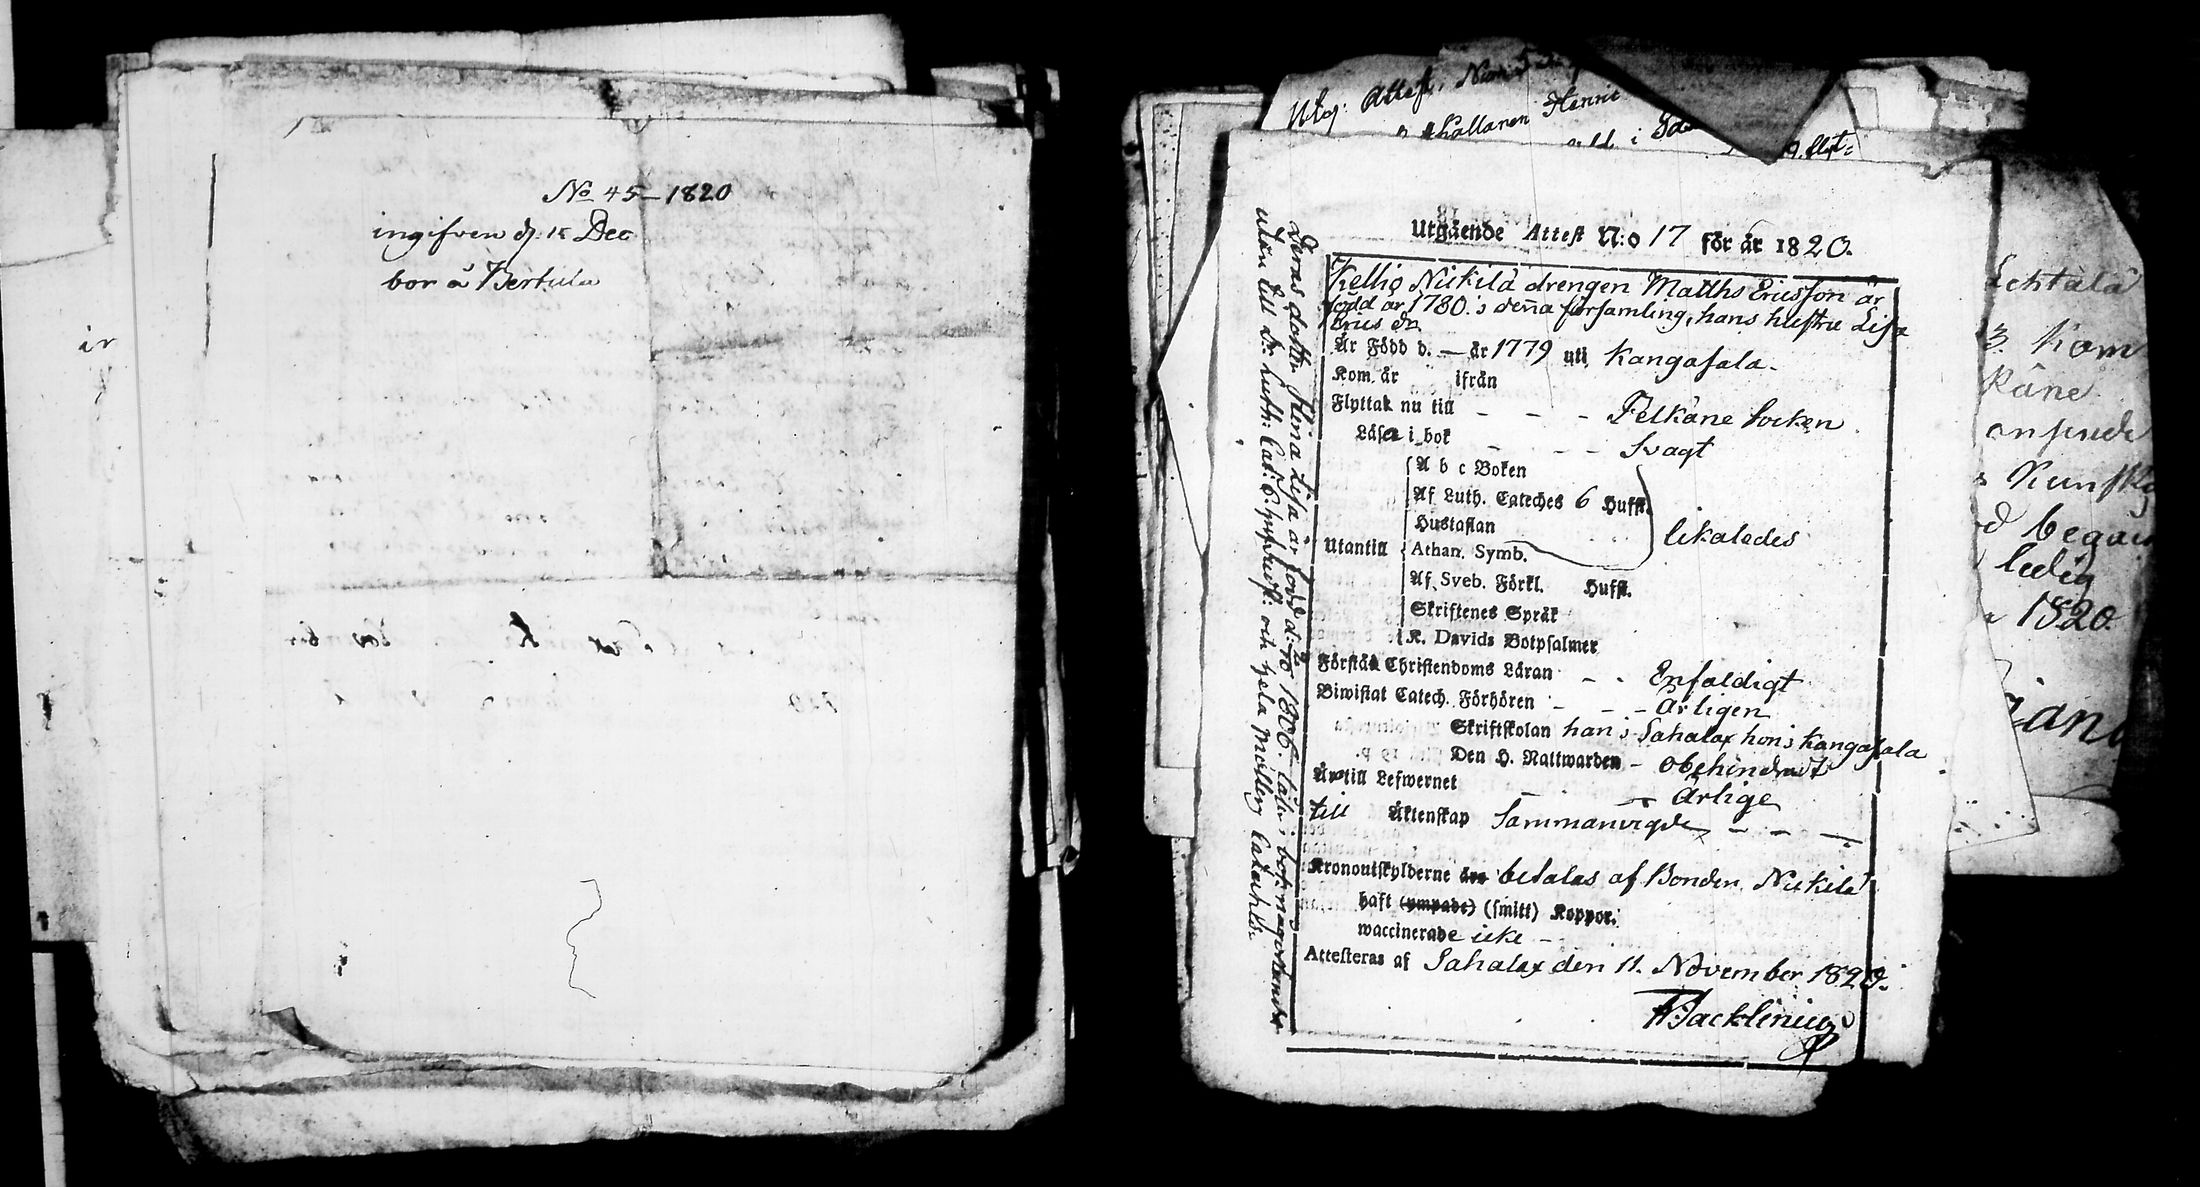 No 45 – 1820
ingifven d. 15 Dec
bor å Bertula
ir
Utg: Attest, Num
Henric
i
Utgående Attest N:o 17 för år 1820.
Kellio Nickilä drengen Matths Ericsson är
född år 1780. i denna församling, hans hustru Lisa
Är Född d. — år 1779 uti Kangasala.
Kom. år ifrån
Flyttat nu till – – – Pelkäne Socken
Läsa i bok – – – Svagt
A b c Boken
Af Luth. Cateches 6 Hufst.
Hustaflan
likaledes
Utantill Athan. Symb.
Af. Sveb. Förkl. Hufst.
Skriftenes Språk
K. Davids Botpsalmer
Förstår Christendoms Läran – – Enfaldigt
Biwistat Catech. Förhören – – – Årligen
Skriftskolan han i Sahalax hon i Kangasala
Den H. Nattwarden – obehindradt
Är till Lefwernet – – Ärlige
till Äktenskap Sammanvigde – – –
Kronoutskylderne äro betalas af Bonden Nickilä
haft (ympade) (smitt) Koppor.
waccinerade icke –
Attesteras af Sahalax den 11. November 1820.
Deras dotter Stina Lisa är född d. 1806. läser i bok något
utan till Dr. Luth: Cat: 6 hufvudst: och hela Möllers Catechés.
3. Kom
Käne
Kunska
ledig
1820.